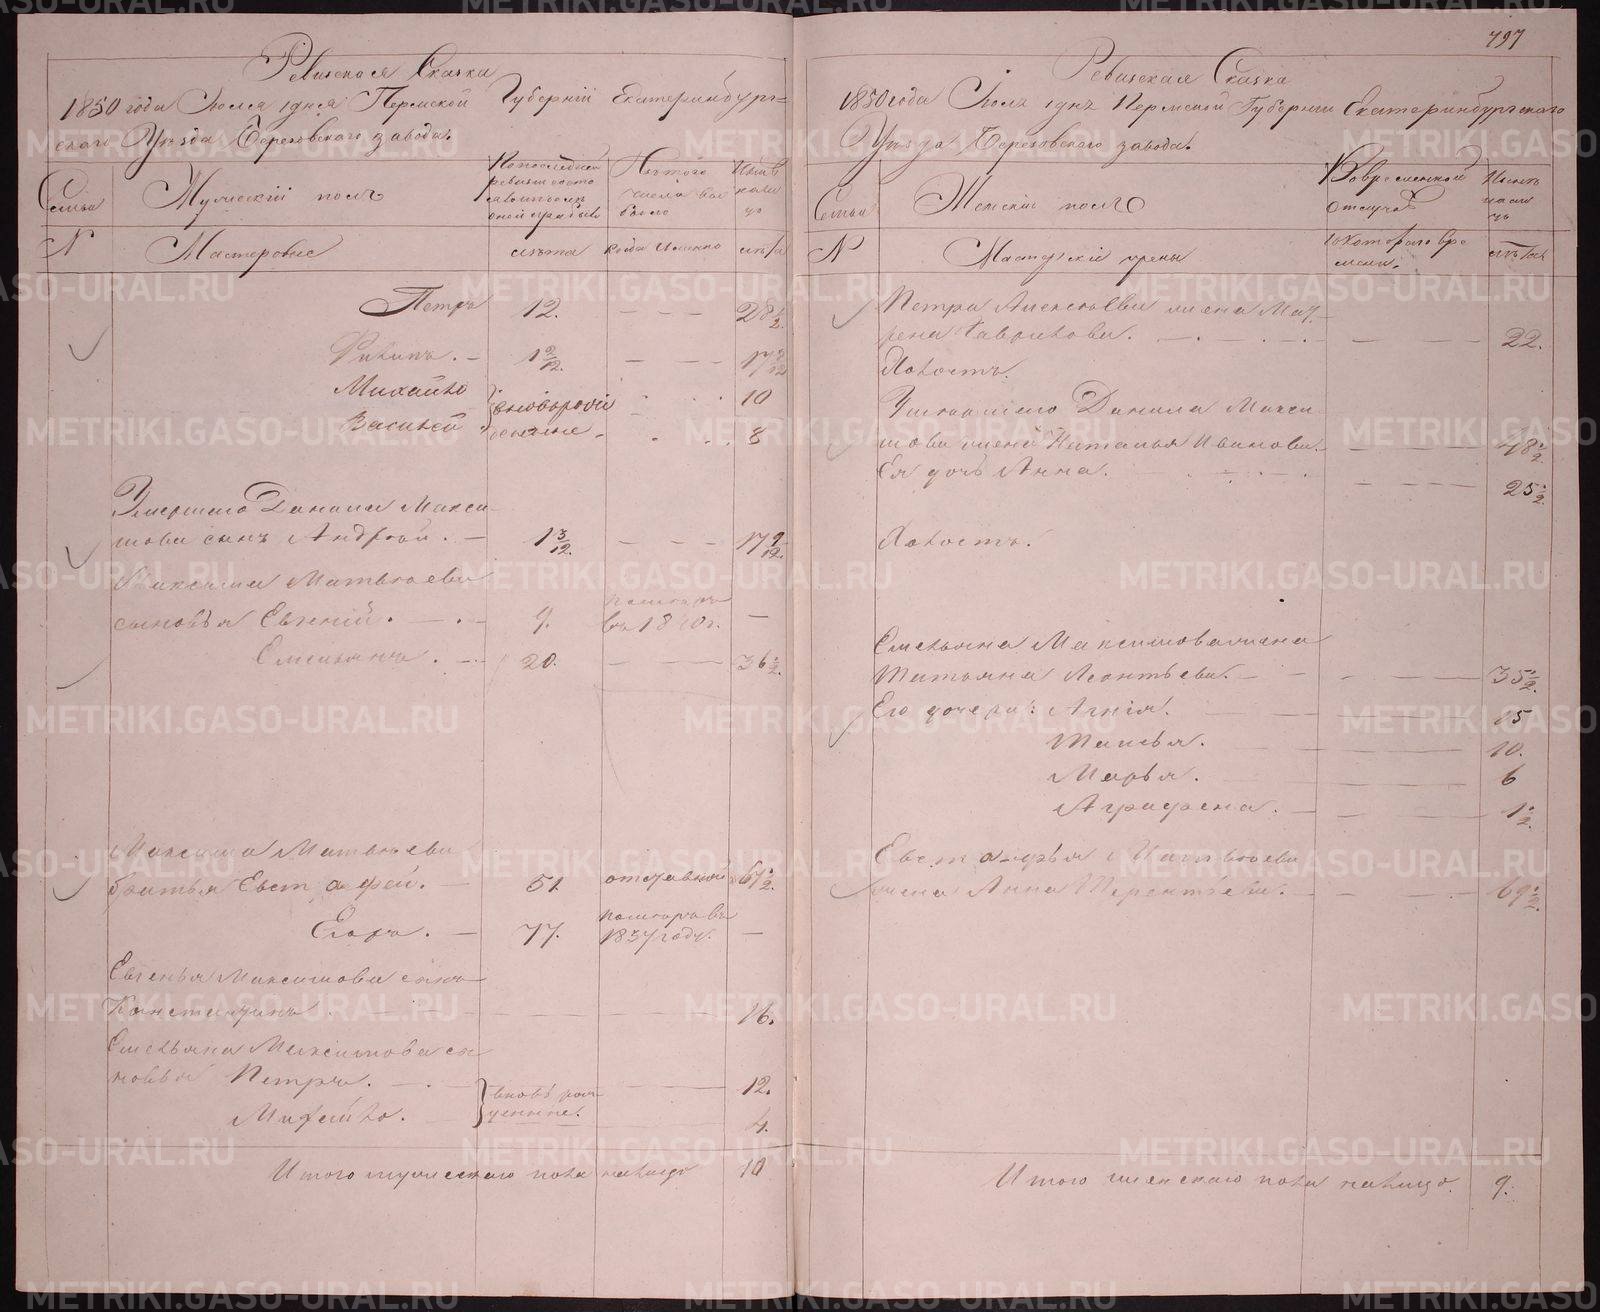 Ревизская Сказка
1850 года Июля 1 дня Пермской Губернии Екатеринбург=
скаго Уезда Березовскаго завода.
Семьи
Мужескій полъ
По последней
ревизіи состо
Изъ того
числа вы
было
Ныне
налицо
N
Мастеровые
лѣта
когда именно
лѣта
Петръ 12. — — — 28 1/2
Филипъ. — 1 2/12. — — 17 8/12
Михайло 10
Василей 8
Умершаго Данила Макси
мова сынъ Андрей. — 1 3/12. — — — 17 9/12.
Максима Матвѣева
сыновья Евгений. — 9. въ 1840 г. —
Емельянъ. — 20. — — — 36 1/2.
Максима Матвѣева
братья Евстафей. — 51. отставной 67 1/2.
Егоръ. — 77. померъ въ 1837 году. —
Евгенья Максимова сынъ
Константинъ 16.
Емельяна Максимова сы
новья Петръ. 12.
вновь рож
денные.
Михайло. 4.
Итого мужескаго пола налицо 10
797
Ревизская Сказка
1850 года Июля 1 дня Пермской Губернии Екатеринбургскаго
Уезда Березовскаго завода.
Семьи
Женскій полъ
Во временной
отлучке
Ныне
нали
цо
N
Мастерскіи жены
съ котораго вре
мени.
лѣта
Петра Алексѣева жена Мат
рена Гаврилова. 22.
Холостъ.
Умершаго Данила Макси
мова жена Наталья Иванова. 48 1/2.
Ея дочь Анна. 25 1/2.
Холостъ.
Емельяна Максимова жена
Татьяна Леонтьева. 35 1/2.
Его дочери: Агнія. 15
Таисья. 10.
Марья. 6
Аграфена. 1 1/2.
Евстафья Матвѣева
жена Анна Терентьева. 69 1/2.
Итого женскаго пола налицо. 9.
METRIKI.GASO-URAL.RU